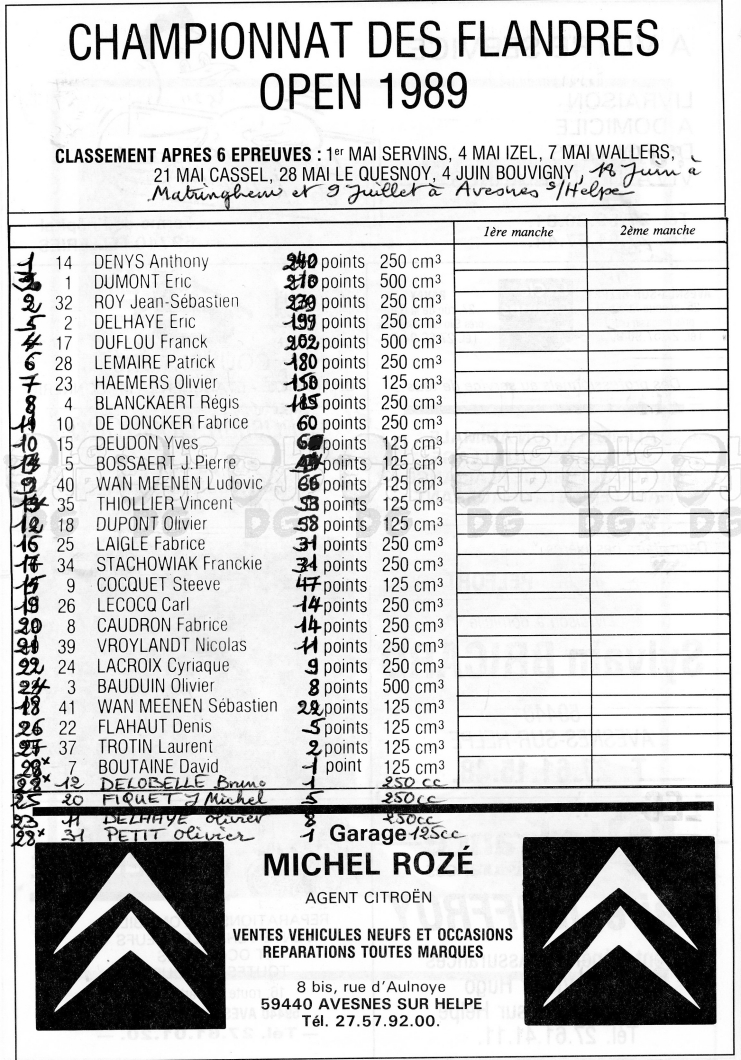 CHAMPIONNAT DES FLANDRES
OPEN 1989
CLASSEMENT APRES 6 EPREUVES : 1er MAI SERVINS, 4 MAI IZEL, 7 MAI WALLERS,
21 MAI CASSEL, 28 MAI LE QUESNOY, 4 JUIN BOUVIGNY, 18 Juin à
Matringhem et 9 Juillet à Avesnes s/Helpe
1ère manche 2ème manche
1 14 DENYS Anthony 240 points 250 cm³
1 DUMONT Eric 210 points 500 cm³
2 32 ROY Jean-Sébastien 239 points 250 cm³
5 2 DELHAYE Eric 199 points 250 cm³
4 17 DUFLOU Franck 202 points 500 cm³
6 28 LEMAIRE Patrick 180 points 250 cm³
7 23 HAEMERS Olivier 150 points 125 cm³
8 4 BLANCKAERT Régis points 250 cm³
11 10 DE DONCKER Fabrice 60 points 250 cm³
10 15 DEUDON Yves points 125 cm³
5 BOSSAERT J.Pierre points 125 cm³
9 40 WAN MEENEN Ludovic 66 points 125 cm³
35 THIOLLIER Vincent 53 points 125 cm³
12 18 DUPONT Olivier 58 points 125 cm³
16 25 LAIGLE Fabrice 31 points 250 cm³
17 34 STACHOWIAK Franckie points 250 cm³
15 9 COCQUET Steeve 47 points 125 cm³
19 26 LECOCQ Carl 14 points 250 cm³
20 8 CAUDRON Fabrice 14 points 250 cm³
21 39 VROYLANDT Nicolas 11 points 250 cm³
22 24 LACROIX Cyriaque 9 points 250 cm³
24 3 BAUDUIN Olivier 8 points 500 cm³
18 41 WAN MEENEN Sébastien 22 points 125 cm³
26 22 FLAHAUT Denis 5 points 125 cm³
27 37 TROTIN Laurent 2 points 125 cm³
28x 7 BOUTAINE David 1 point 125 cm³
28x 12 DELOBELLE Bruno 1 250cc
25 20 FIQUET J Michel 5 250cc
23 11 DELHAYE Olivier 8 250cc
28x 31 PETIT Olivier 1 125cc
Garage
MICHEL ROZÉ
AGENT CITROËN
VENTES VEHICULES NEUFS ET OCCASIONS
REPARATIONS TOUTES MARQUES
8 bis, rue d'Aulnoye
59440 AVESNES SUR HELPE
Tél. 27.57.92.00.